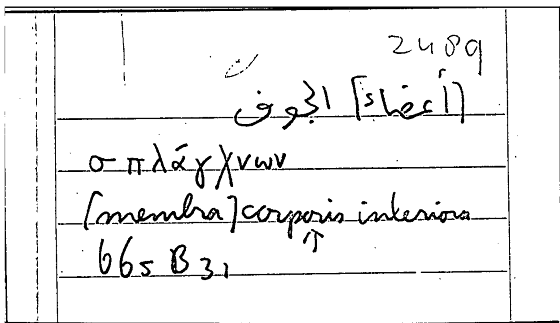 2489
[أعضاء] الجوف
σπλάγχνων
[membra] corporis interiora
↑
665 B 31